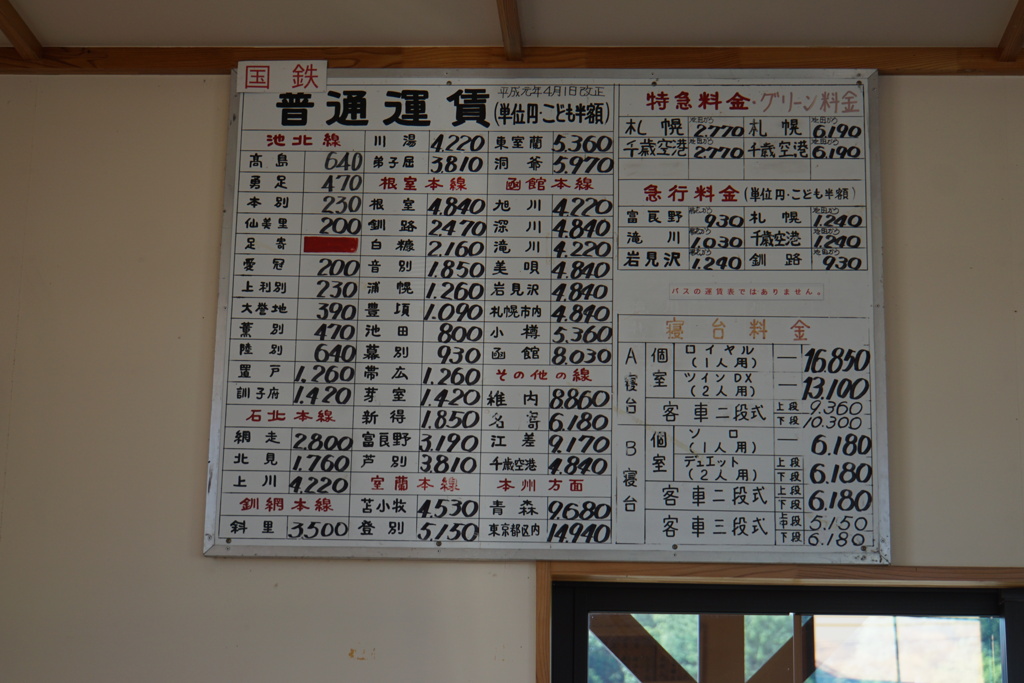 国鉄
普通運賃 平成元年4月1日改正
(単位円・こども半額)
池北線
高島 640
勇足 470
本別 230
仙美里 200
足寄
愛冠 200
上利別 230
大誉地 390
薫別 470
陸別 640
置戸 1,260
訓子府 1,420
石北本線
網走 2,800
北見 1,760
上川 4,220
釧網本線
斜里 3,500
川湯 4,220
弟子屈 3,810
根室本線
根室 4,840
釧路 2,470
白糠 2,160
音別 1,850
浦幌 1,260
豊頃 1,090
池田 800
幕別 930
帯広 1,260
芽室 1,420
新得 1,850
富良野 3,190
芦別 3,810
室蘭本線
苫小牧 4,530
登別 5,150
東室蘭 5,360
洞爺 5,970
函館本線
旭川 4,220
深川 4,840
滝川 4,220
美唄 4,840
岩見沢 4,840
札幌市内 4,840
小樽 5,360
函館 8,030
その他の線
稚内 8,860
名寄 6,180
江差 9,170
千歳空港 4,840
本州方面
青森 9,680
東京都区内 14,940
特急料金・グリーン料金
札幌 池田から 2,770 札幌 池田から 6,190
千歳空港 池田から 2,770 千歳空港 池田から 6,190
急行料金(単位円・こども半額)
富良野 930 札幌 池田から 1,240
滝川 1,030 千歳空港 池田から 1,240
岩見沢 1,240 釧路 池田から 930
バスの運賃表ではありません。
寝台料金
A寝台 個室 ロイヤル(1人用) — 16,850
ツインDX(2人用) — 13,100
客車二段式 上段 9,360
下段 10,300
B寝台 個室 ソロ(1人用) — 6,180
デュエット(2人用) 上段 下段 6,180
客車二段式 上段 下段 6,180
客車三段式 上中段 5,150
下段 6,180